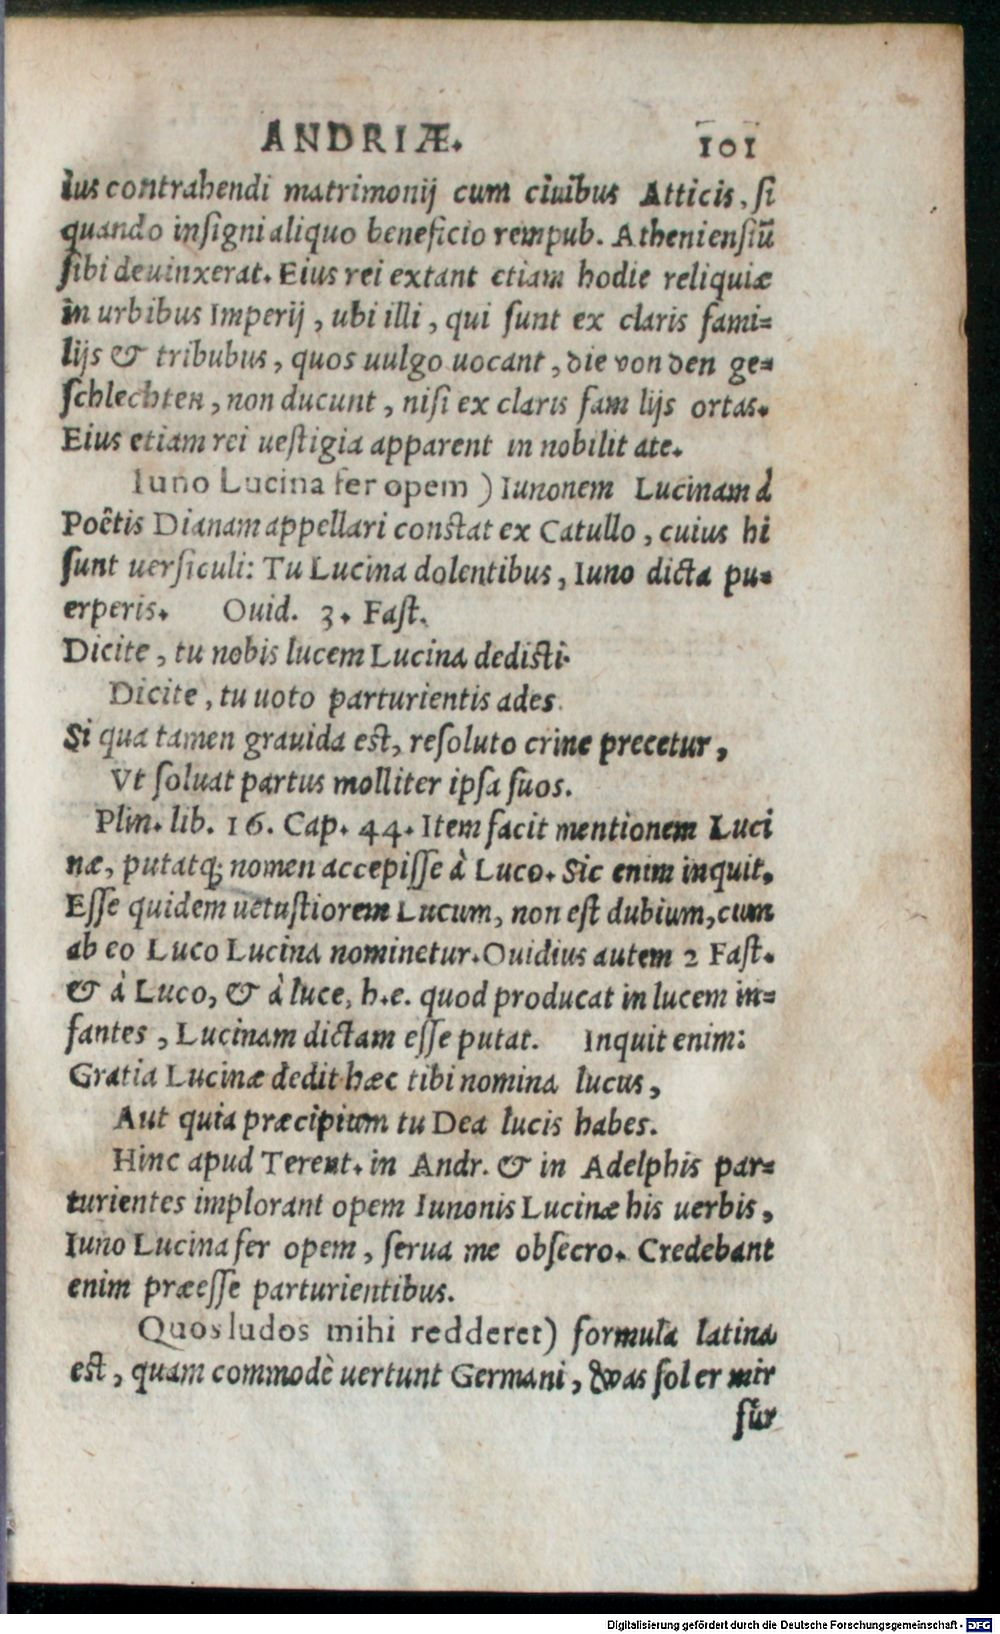 ANDRIÆ. 101
Ius contrahendi matrimonij cum ciuibus Atticis, si
quando insigni aliquo beneficio rempub. Atheniensiū
sibi deuinxerat. Eius rei extant etiam hodie reliquiæ
in urbibus Imperij, ubi illi, qui sunt ex claris fami-
lijs & tribubus, quos uulgo uocant, die von den ge-
schlechten, non ducunt, nisi ex claris fam lijs ortas.
Eius etiam rei uestigia apparent in nobilit ate.
Iuno Lucina fer opem ) Iunonem Lucinam à
Poêtis Dianam appellari constat ex Catullo, cuius hi
sunt uersiculi: Tu Lucina dolentibus, Iuno dicta pu-
erperis. Ouid. 3. Fast.
Dicite, tu nobis lucem Lucina dedisti.
Dicite, tu uoto parturientis ades.
Si qua tamen grauida est, resoluto crine precetur,
Vt soluat partus molliter ipsa suos.
Plin. lib. 16. Cap. 44. Item facit mentionem Luci
næ, putatq; nomen accepisse à Luco. Sic enim inquit.
Esse quidem uetustiorem Lucum, non est dubium, cum
ab eo Luco Lucina nominetur. Ouidius autem 2 Fast.
& à Luco, & à luce, h.e. quod producat in lucem in-
fantes, Lucinam dictam esse putat. Inquit enim:
Gratia Lucinæ dedit hæc tibi nomina lucus,
Aut quia præcipium tu Dea lucis habes.
Hinc apud Terent. in Andr. & in Adelphis par-
turientes implorant opem Iunonis Lucinæ his uerbis,
Iuno Lucina fer opem, serua me obsecro. Credebant
enim præesse parturientibus.
Quos ludos mihi redderet) formula latina
est, quam commodè uertunt Germani, was sol er mir
für
Digitalisierung gefördert durch die Deutsche Forschungsgemeinschaft - DFG